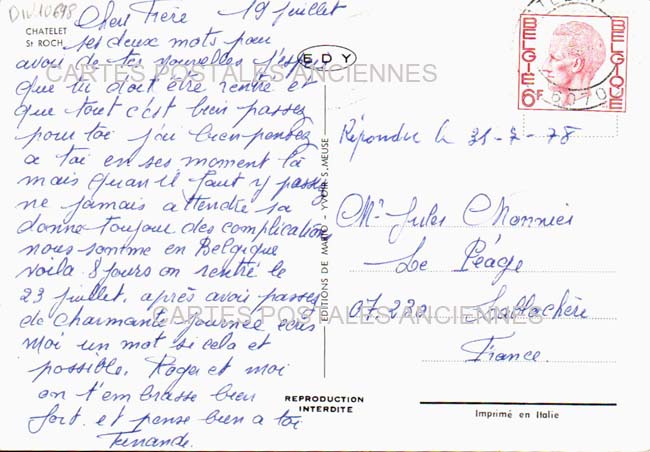 DIV10698
CHATELET
St ROCH
Cher Frère 19 juillet
ses deux mots pour
avoir de tes nouvelles j'espère
que tu doit être rentré et
que tout c'est bien passez
pour toi j'ai bien pensez
a toi en ses moment là
mais quand il faut y passez
ne jamais attendre sa
donne toujour des complications
nous somme en Belgique
voila 8 jours on rentré le
23 juillet. après avoir passez
de charmante journée écris
moi un mot si cela et
possible. Roger et moi
on t'embrasse bien
fort. et pense bien a toi
Fernande.
EDY
EDITIONS DE MARIO - YVOIR S/MEUSE
REPRODUCTION
INTERDITE
BELGIE BELGIQUE
6F
6070
Répondu le 31-7-78
Mr Jules Monnier
Le Péage
07.230 Lablachère
France.
Imprimé en Italie
CARTES POSTALES ANCIENNES
CARTES POSTALES ANCIENNES